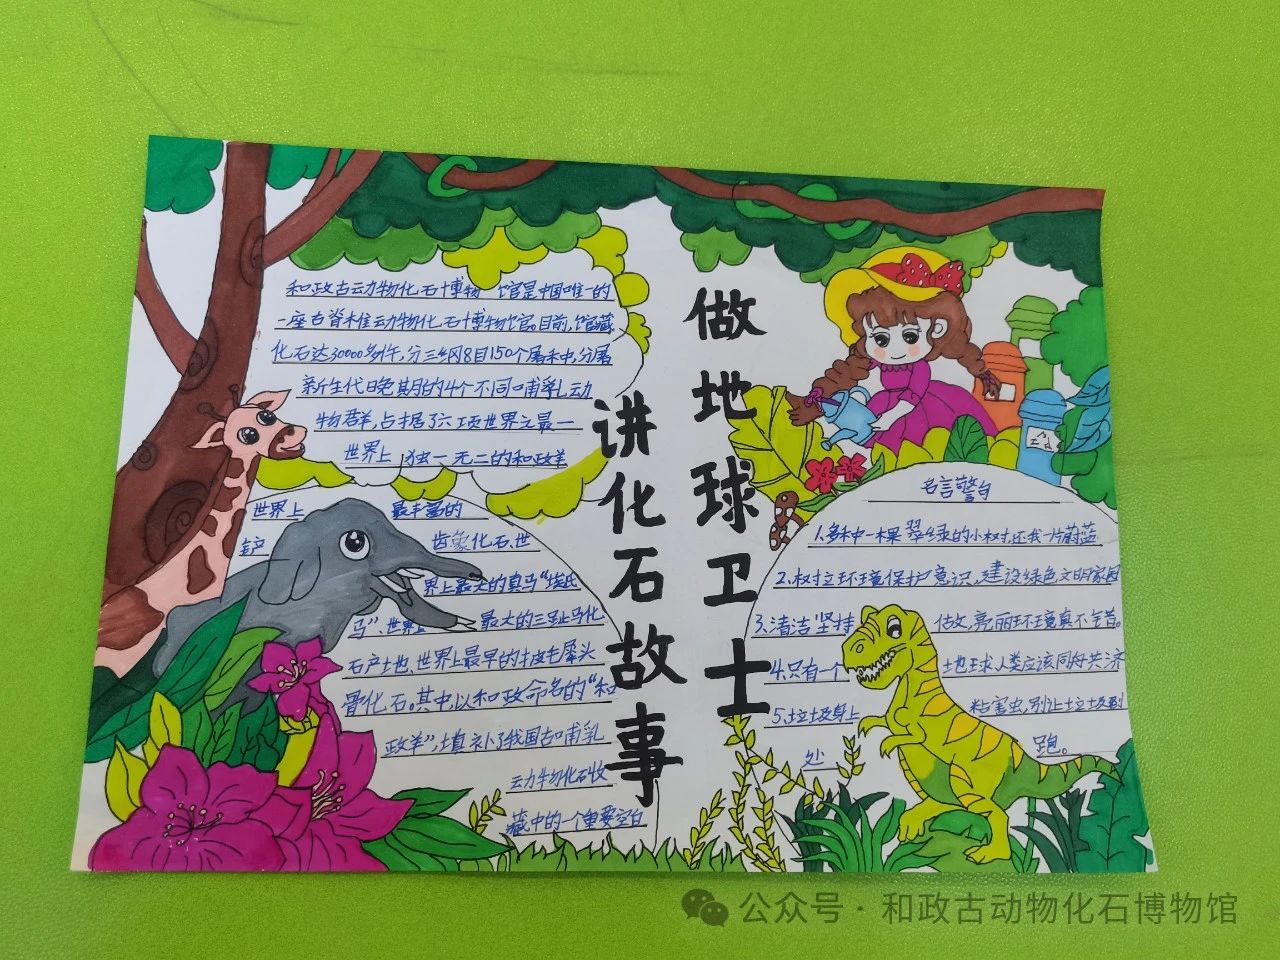 讲化石故事
做地球卫士
和政古动物化石博物馆是中国唯一的
一座古脊椎动物化石博物馆。目前,馆藏
化石达30000多件,分三纲8目150个属种,分属
新生代晚期的4个不同哺乳动
物群,占据了六项世界之最—
世界上独一无二的和政羊
世界上最丰富的
铲齿象化石、世
界上最大的真马“埃氏
马”、世界上最大的三趾马化
石产地、世界上最早的披毛犀头
骨化石。其中,以和政命名的“和
政羊”,填补了我国古哺乳
动物化石收
藏中的一个重要空白
名言警句
1.多种一棵翠绿的小树,还我一片蔚蓝
2.树立环境保护意识,建设绿色文明家园
3.清洁坚持做,亮丽环境真不错。
4.只有一个地球人类应该同舟共济
5.垃圾身上粘害虫,别让垃圾到
处跑。
公众号·和政古动物化石博物馆